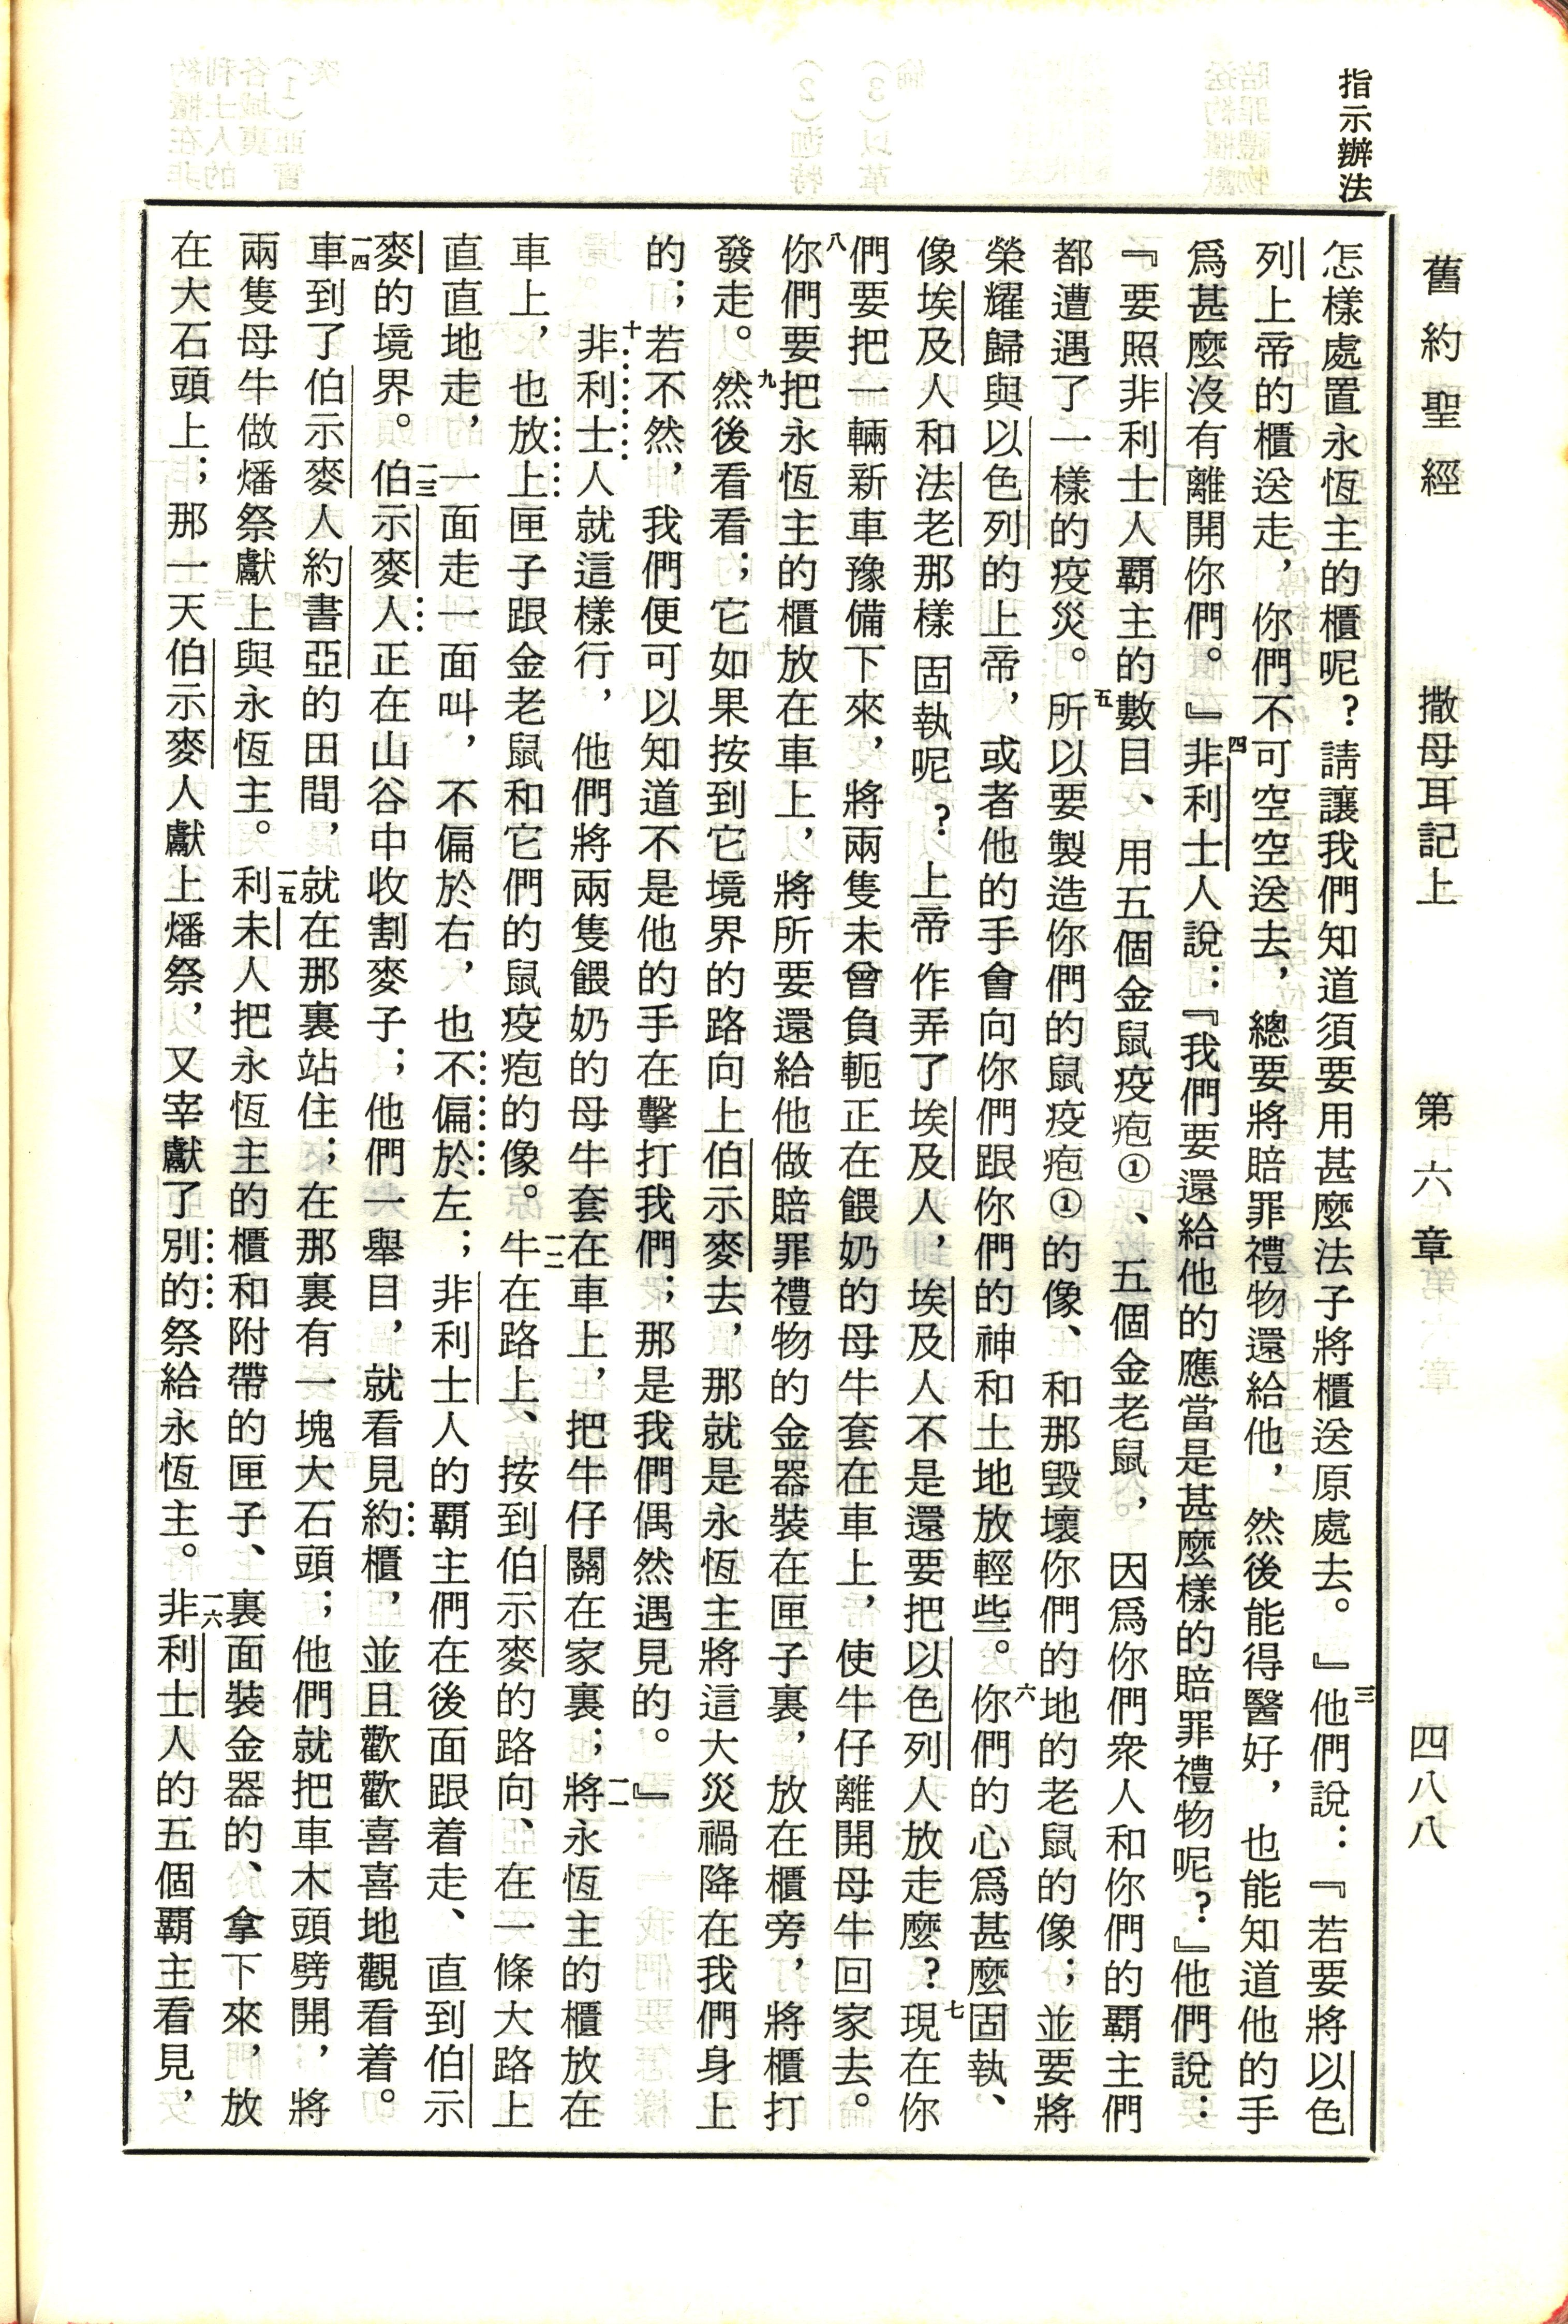 舊約聖經 撒母耳記上 第六章 四八八
指示辦法
怎樣處置永恆主的櫃呢?請讓我們知道須要用甚麼法子將櫃送原處去。』三他們說:『若要將以色
列上帝的櫃送走,你們不可空空送去,總要將賠罪禮物還給他,然後能得醫好,也能知道他的手
爲甚麼沒有離開你們。』四非利士人說:『我們要還給他的應當是甚麼樣的賠罪禮物呢?』他們說:
『要照非利士人霸主的數目、用五個金鼠疫疱①、五個金老鼠,因爲你們衆人和你們的霸主們
都遭遇了一樣的疫災。五所以要製造你們的鼠疫疱①的像、和那毀壞你們的地的老鼠的像;並要將
榮耀歸與以色列的上帝,或者他的手會向你們跟你們的神和土地放輕些。六你們的心爲甚麼固執、
像埃及人和法老那樣固執呢?上帝作弄了埃及人,埃及人不是還要把以色列人放走麼?七現在你
們要把一輛新車豫備下來,將兩隻未曾負軛正在餵奶的母牛套在車上,使牛仔離開母牛回家去。
八你們要把永恆主的櫃放在車上,將所要還給他做賠罪禮物的金器裝在匣子裏,放在櫃旁,將櫃打
發走。九然後看看;它如果按到它境界的路向上伯示麥去,那就是永恆主將這大災禍降在我們身上
的;若不然,我們便可以知道不是他的手在擊打我們;那是我們偶然遇見的。』
十非利士人就這樣行,他們將兩隻餵奶的母牛套在車上,把牛仔關在家裏;一一將永恆主的櫃放在
車上,也放上匣子跟金老鼠和它們的鼠疫疱的像。一二牛在路上、按到伯示麥的路向、在一條大路上
直直地走,一面走一面叫,不偏於右,也不偏於左;非利士人的霸主們在後面跟着走、直到伯示
麥的境界。一三伯示麥人正在山谷中收割麥子;他們一舉目,就看見約櫃,並且歡歡喜喜地觀看着。
一四車到了伯示麥人約書亞的田間,就在那裏站住;在那裏有一塊大石頭;他們就把車木頭劈開,將
兩隻母牛做燔祭獻上與永恆主。一五利未人把永恆主的櫃和附帶的匣子、裏面裝金器的、拿下來,放
在大石頭上;那一天伯示麥人獻上燔祭,又宰獻了別的祭給永恆主。一六非利士人的五個霸主看見,